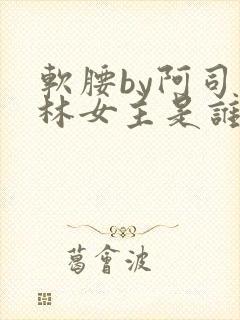 軟腰by阿司
林女主是誰
葛會波